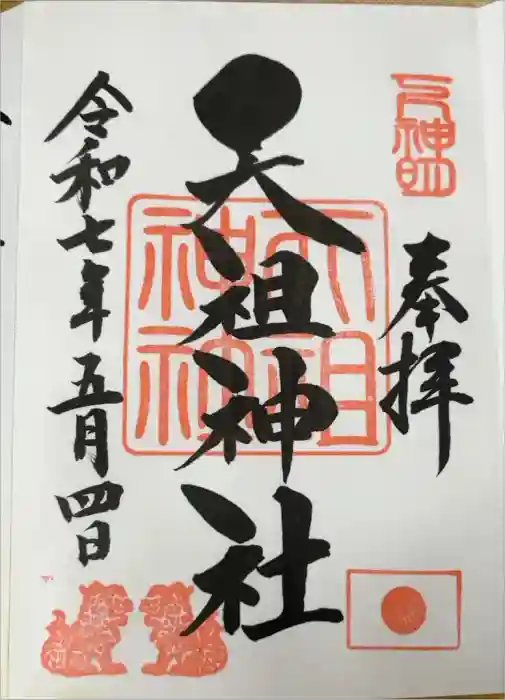 奉拝
天祖神社
令和七年五月四日
天祖神社